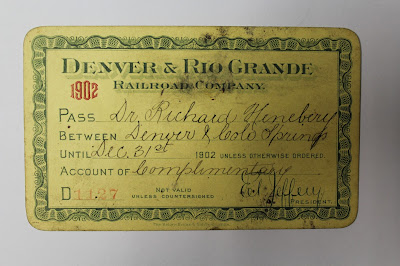 DENVER & RIO GRANDE
1902
RAILROAD COMPANY.
PASS Dr. Richard Henebery
BETWEEN Denver & Colo Springs
UNTIL Dec. 31st 1902 UNLESS OTHERWISE ORDERED.
ACCOUNT OF Complimentary
D 1127 NOT VALID
UNLESS COUNTERSIGNED
E.T. Jeffery
PRESIDENT.